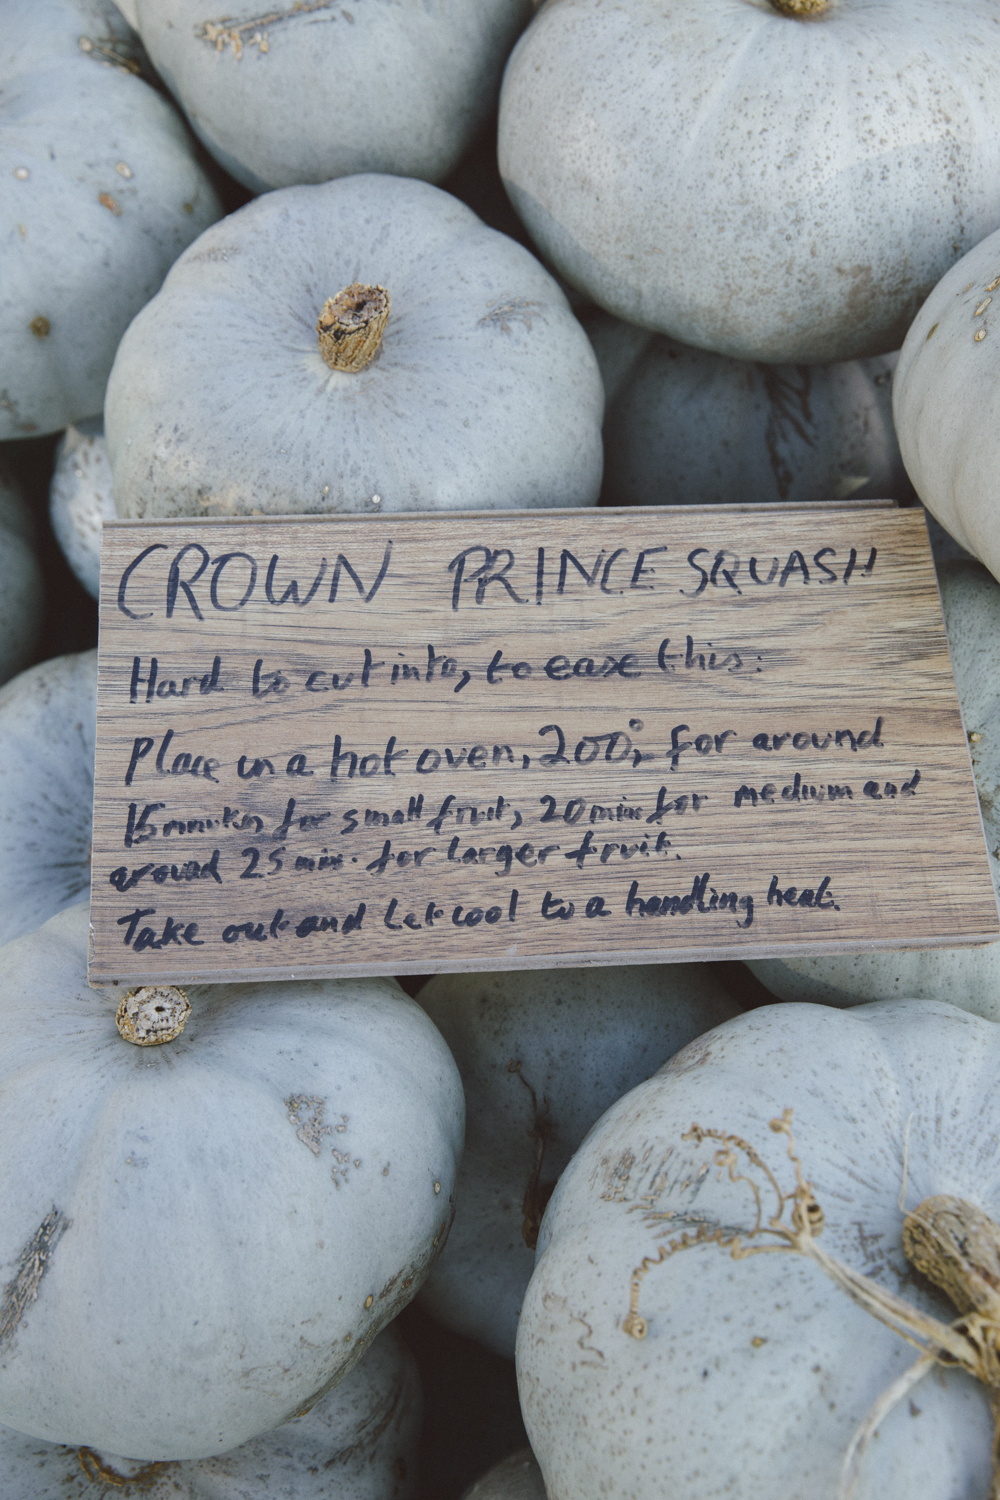 CROWN PRINCE SQUASH
Hard to cut into, to ease this:
Place in a hot oven, 200°, for around
15 minutes for small fruit, 20 min for medium and
around 25 min. for larger fruit.
Take out and let cool to a handling heat.